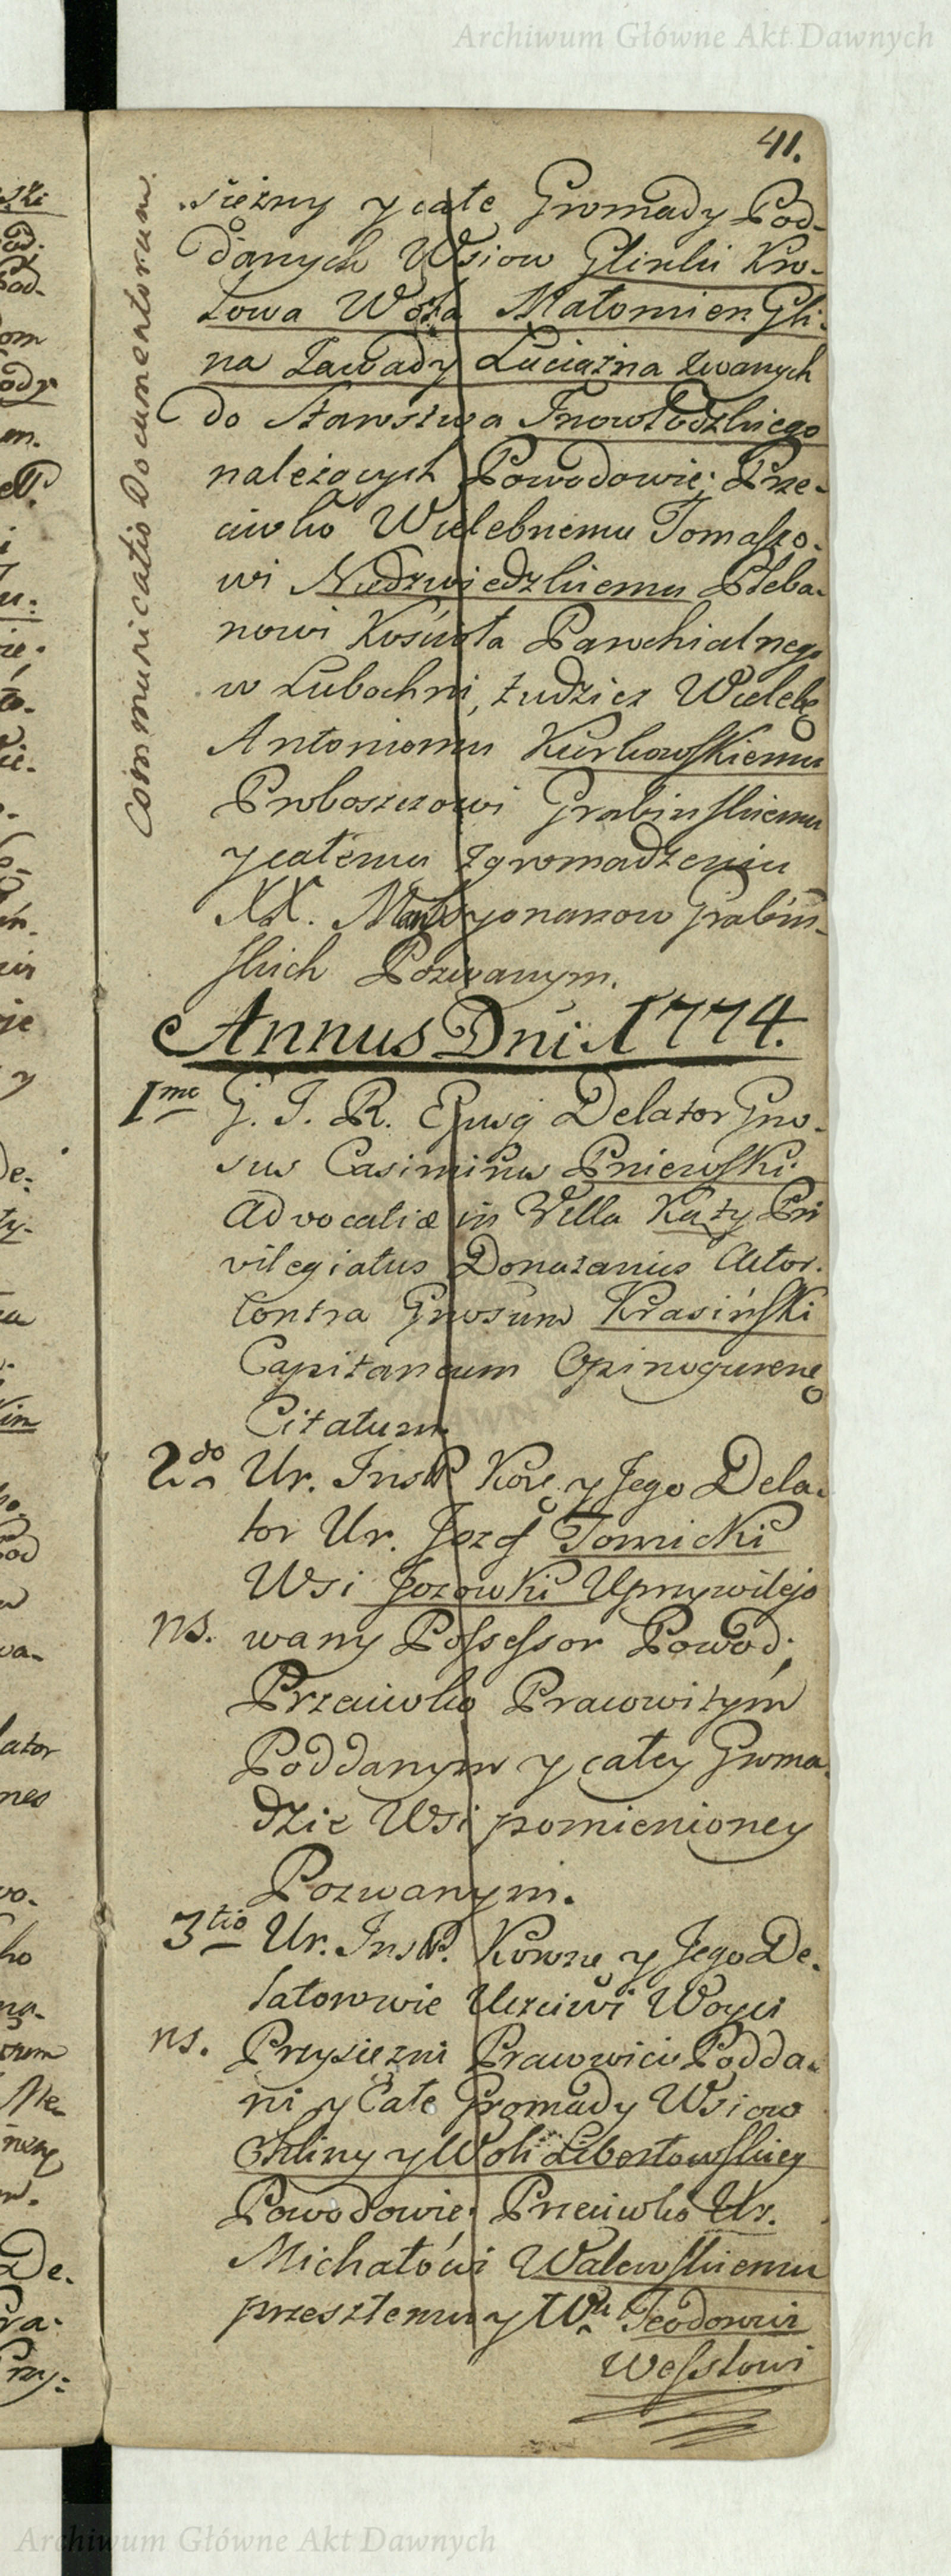 Archiwum Główne Akt Dawnych
41.
Communicatio Documentorum.
sięzny y całe Gromady Pod-
danych Wsiow Glinki Kro-
lowa Wola Małomierz Gli-
na Zawady Luciążna zwanych
do Starostwa Inowłodzkiego
należących Powodowie; Prze-
ciwko Wielebnemu Tomaszo-
wi Niedzwiedzkiemu Pleba-
nowi Kościoła Parochialnego
w Lubochni, tudziez Wieleb
Antoniemu Kurkowskiemu
Proboszczowi Grabinskiemu
y całemu zgromadzeniu
XX. Mansyonarzow Grabin-
skich Pozwanym.
Annus Dni 1774.
1mo G. I. R. Ejusq Delator Gno-
sus Casimirus Pniewski
Advocatiæ in Villa Kąty Pri
vilegiatus Donatarius Actor.
Contra Gnosum Krasiński
Capitaneum Opinogurens
Citatum
2do Ur. Inst Kor y Jego Dela-
tor Ur. Jozef Tomicki
Wsi Jozowki Uprzywilejo
ns. wany Possessor Powod;
Przeciwko Pracowitym
Poddanym y całey Groma-
dzie Wsi pomienioney
Pozwanym.
3tio Ur. Inst. Koron y Jego De-
latorowie Uczciwi Woyci
ns. Przysiezni Pracowici Podda-
ni y Całe Gromady Wsiow
Chliny y Woli Libertowskiey
Powodowie; Przeciwko Ur.
Michałowi Walewskiemu
przeszłemu y Wu Teodorowi
Wesslowi
Archiwum Główne Akt Dawnych